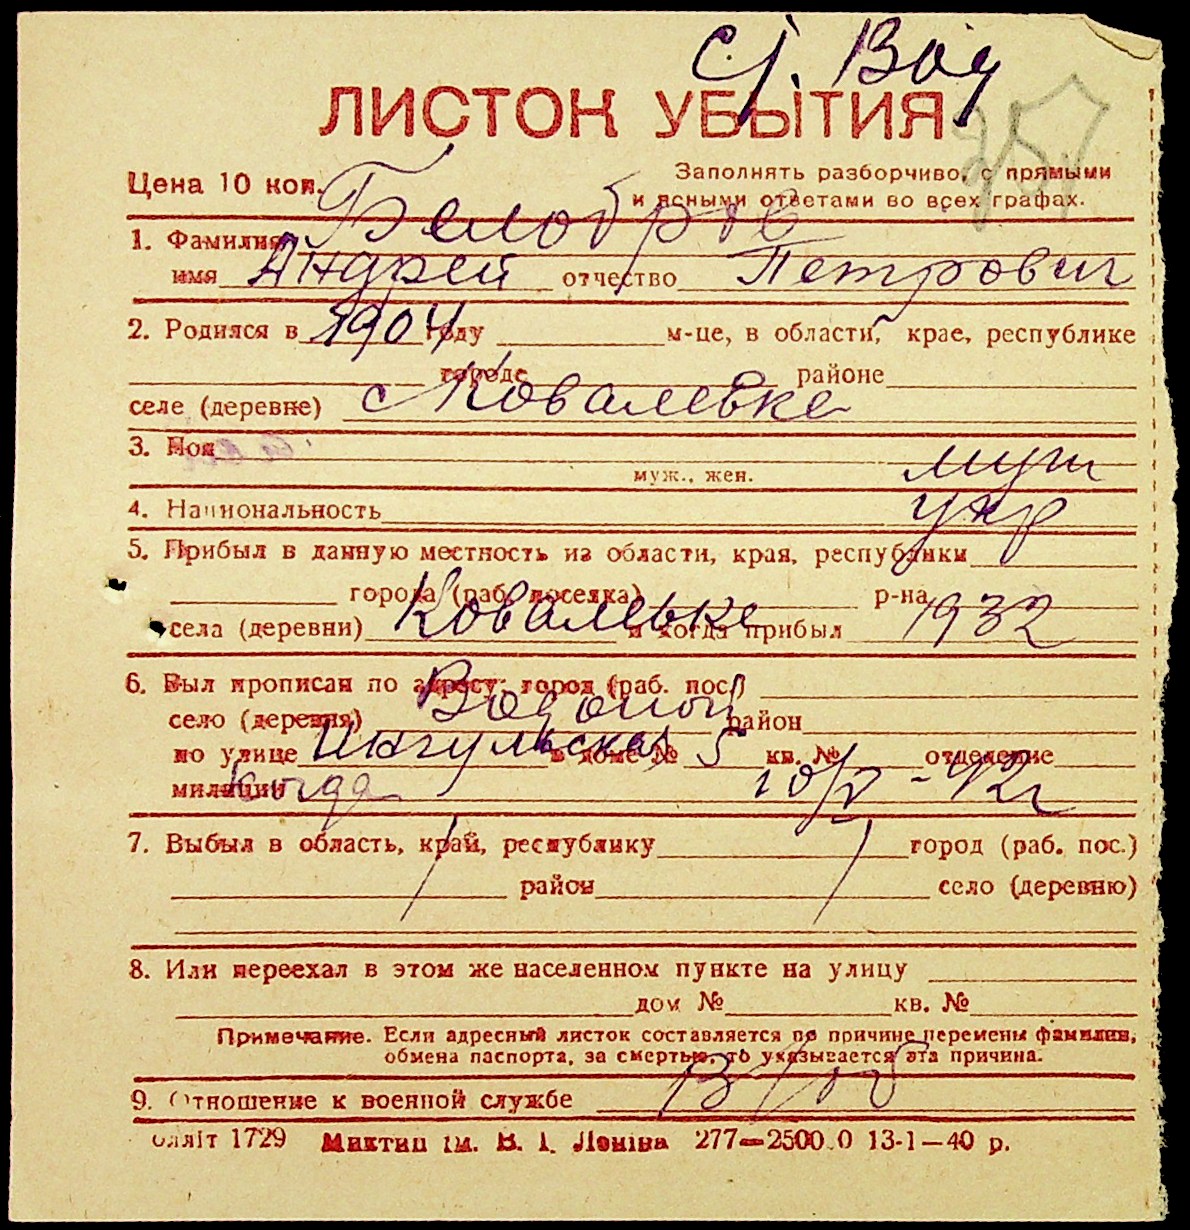 ЛИСТОК УБЫТИЯ
Цена 10 коп.
Заполнять разборчиво, с прямыми
и ясными ответами во всех графах.
1. Фамилия Белобров
имя Андрей отчество Петрович
2. Родился в 1904 году м-це, в области, крае, республике
городе районе
селе (деревне) с Ковалевке
3. Пол муж
муж., жен.
4. Национальность укр
5. Прибыл в данную местность из области, края, республики
города (раб. поселка) р-на
села (деревни) Ковалевке и когда прибыл 1932
6. Был прописан по адресу: город (раб. пос.)
село (деревня) Водопой район
по улице Ингульская в доме № 5 кв. № отделение
милиции когда 10/V-42г
7. Выбыл в область, край, республику город (раб. пос.)
район село (деревню)
8. Или переехал в этом же населенном пункте на улицу
дом № кв. №
Примечание. Если адресный листок составляется по причине перемены фамилии,
обмена паспорта, за смертью, то указывается эта причина.
9. Отношение к военной службе в/об
1729 Миктип ім. В. І. Леніна 277—2500.0 13-1—40 р.